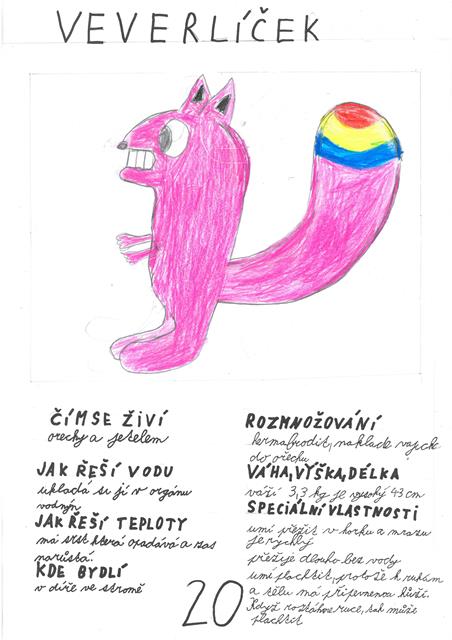 VEVERLÍČEK
ČÍM SE ŽIVÍ
orechy a jetelem
JAK ŘEŠÍ VODU
ukladá si jí v orgánu
vodnýn
JAK ŘEŠÍ TEPLOTY
má srst která opadává a zas
narůstá.
KDE BYDLÍ
v díře ve stromě
ROZMNOŽOVÁNÍ
hermafrodit, naklade vajck
do ořechu
VÁHA, VÝŠKA, DÉLKA
váží 3,3 kg je vysoký 43 cm
SPECIÁLNÍ VLASTNOSTI
umí přežít v horku a mrazu
je rychlý
přežije dlouho bez vody
umí plachtit, protože k rukám
a tělu má připevnenou kůži.
Když roztáhne ruce, tak může
plachtit
20